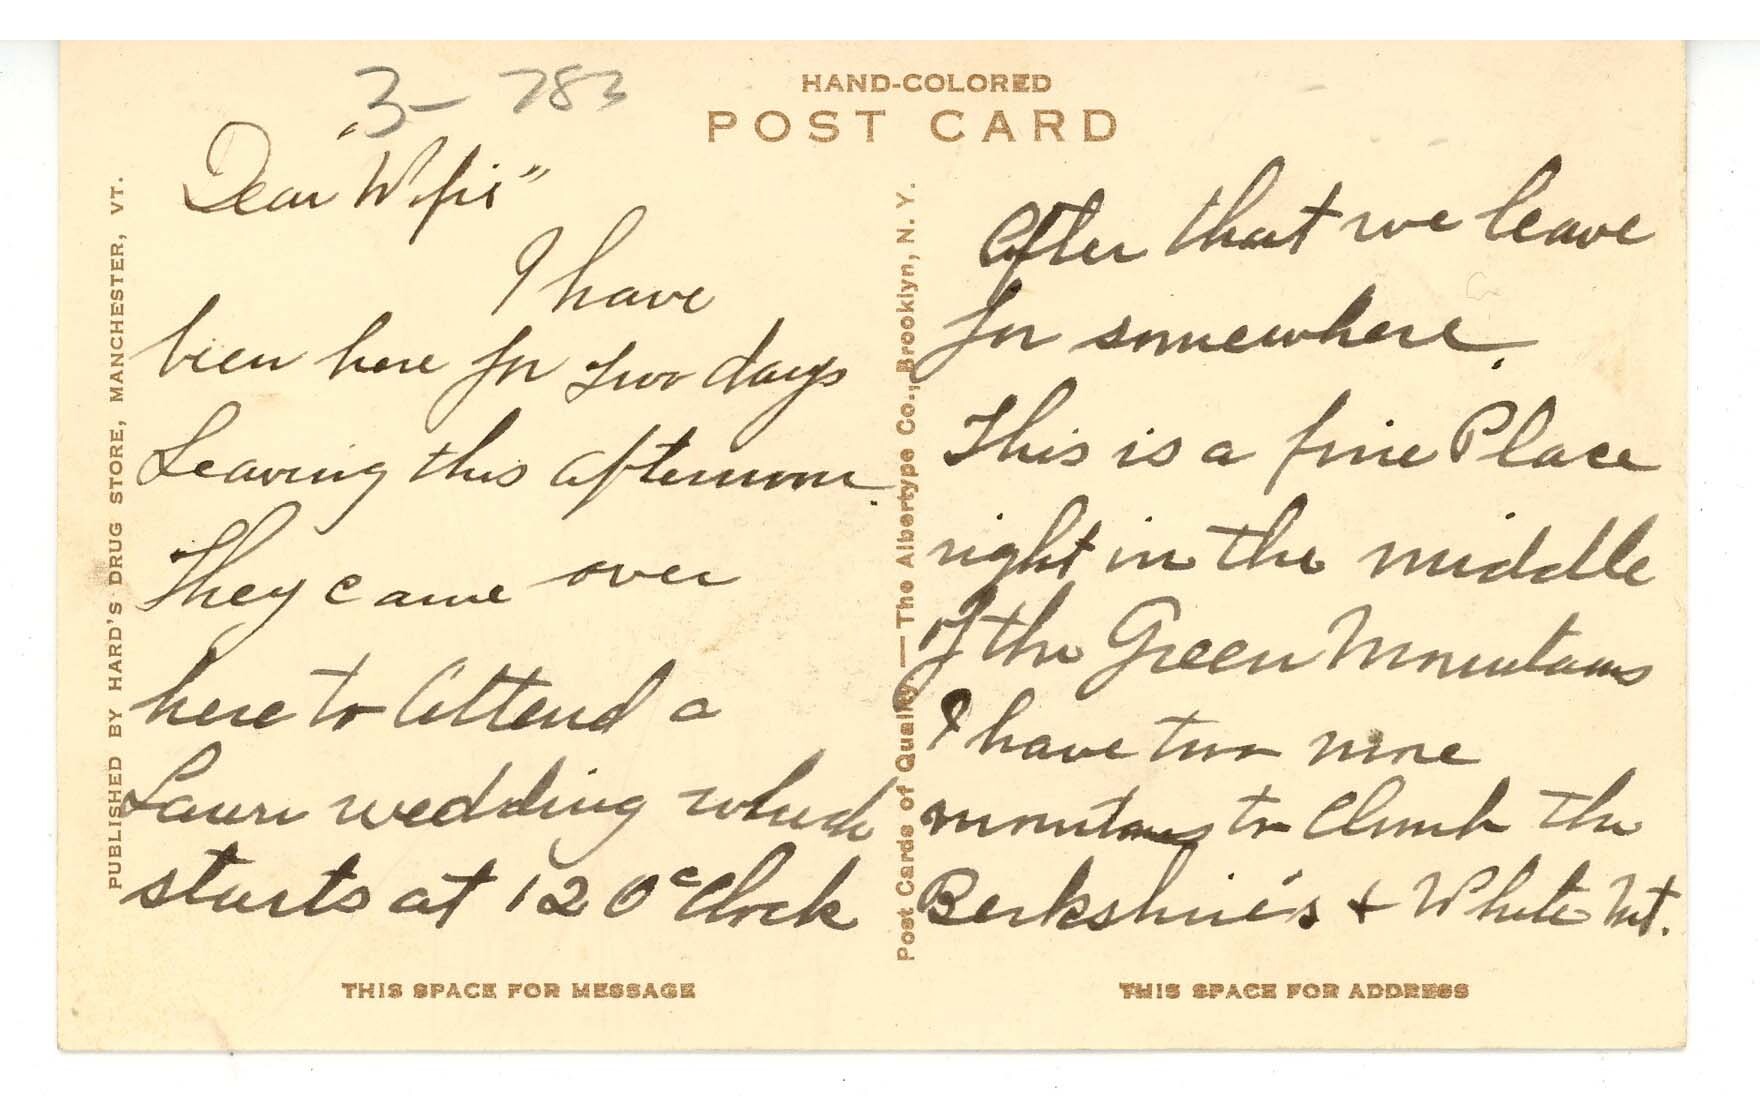 3- 783
HAND-COLORED
POST CARD
PUBLISHED BY HARD'S DRUG STORE, MANCHESTER, VT.
Dear "Wifie"
I have
been here for two days
Leaving this afternoon.
They came over
here to attend a
Lawn wedding which
starts at 12 O'Clock
THIS SPACE FOR MESSAGE
Post Cards of Quality — The Albertype Co., Brooklyn, N. Y.
After that we leave
for somewhere.
This is a fine Place
right in the middle
of the Green Mountains
I have two more
mountains to Climb the
Berkshire's + White Mt.
THIS SPACE FOR ADDRESS